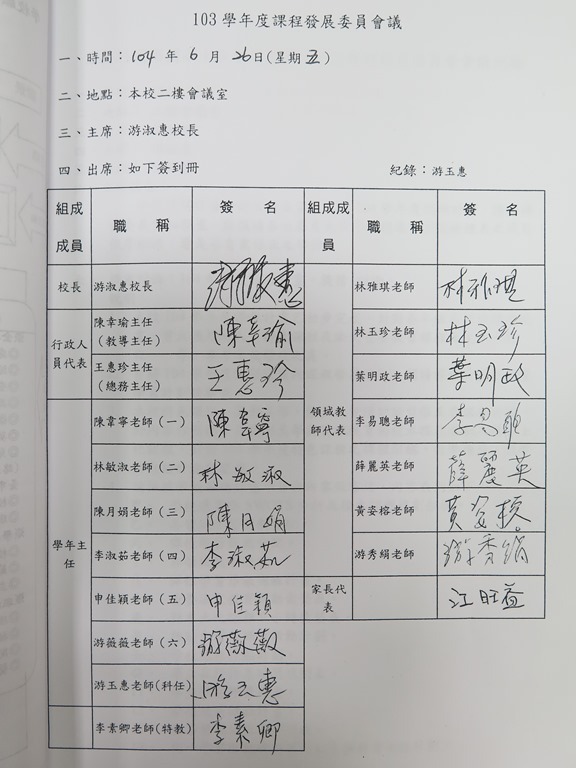 103 學年度課程發展委員會議
一、時間：104 年 6 月 26日(星期五)
二、地點：本校二樓會議室
三、主席：游淑惠校長
四、出席：如下簽到冊 紀錄：游玉惠
組成成員 職稱 簽名 組成成員 職稱 簽名
校長 游淑惠校長 游淑惠 林雅琪老師 林雅琪
行政人員代表 陳幸瑜主任（教導主任） 陳幸瑜 林玉珍老師 林玉珍
王惠珍主任（總務主任） 王惠珍 葉明政老師 葉明政
學年主任 陳韋寧老師（一） 陳韋寧 領域教師代表 李易聰老師 李易聰
林敏淑老師（二） 林敏淑 薛麗英老師 薛麗英
陳月娟老師（三） 陳月娟 黃姿榕老師 黃姿榕
李淑茹老師（四） 李淑茹 游秀絹老師 游秀絹
申佳穎老師（五） 申佳穎 家長代表 江旺益
游薇薇老師（六） 游薇薇
游玉惠老師(科任) 游玉惠
李素卿老師(特教) 李素卿